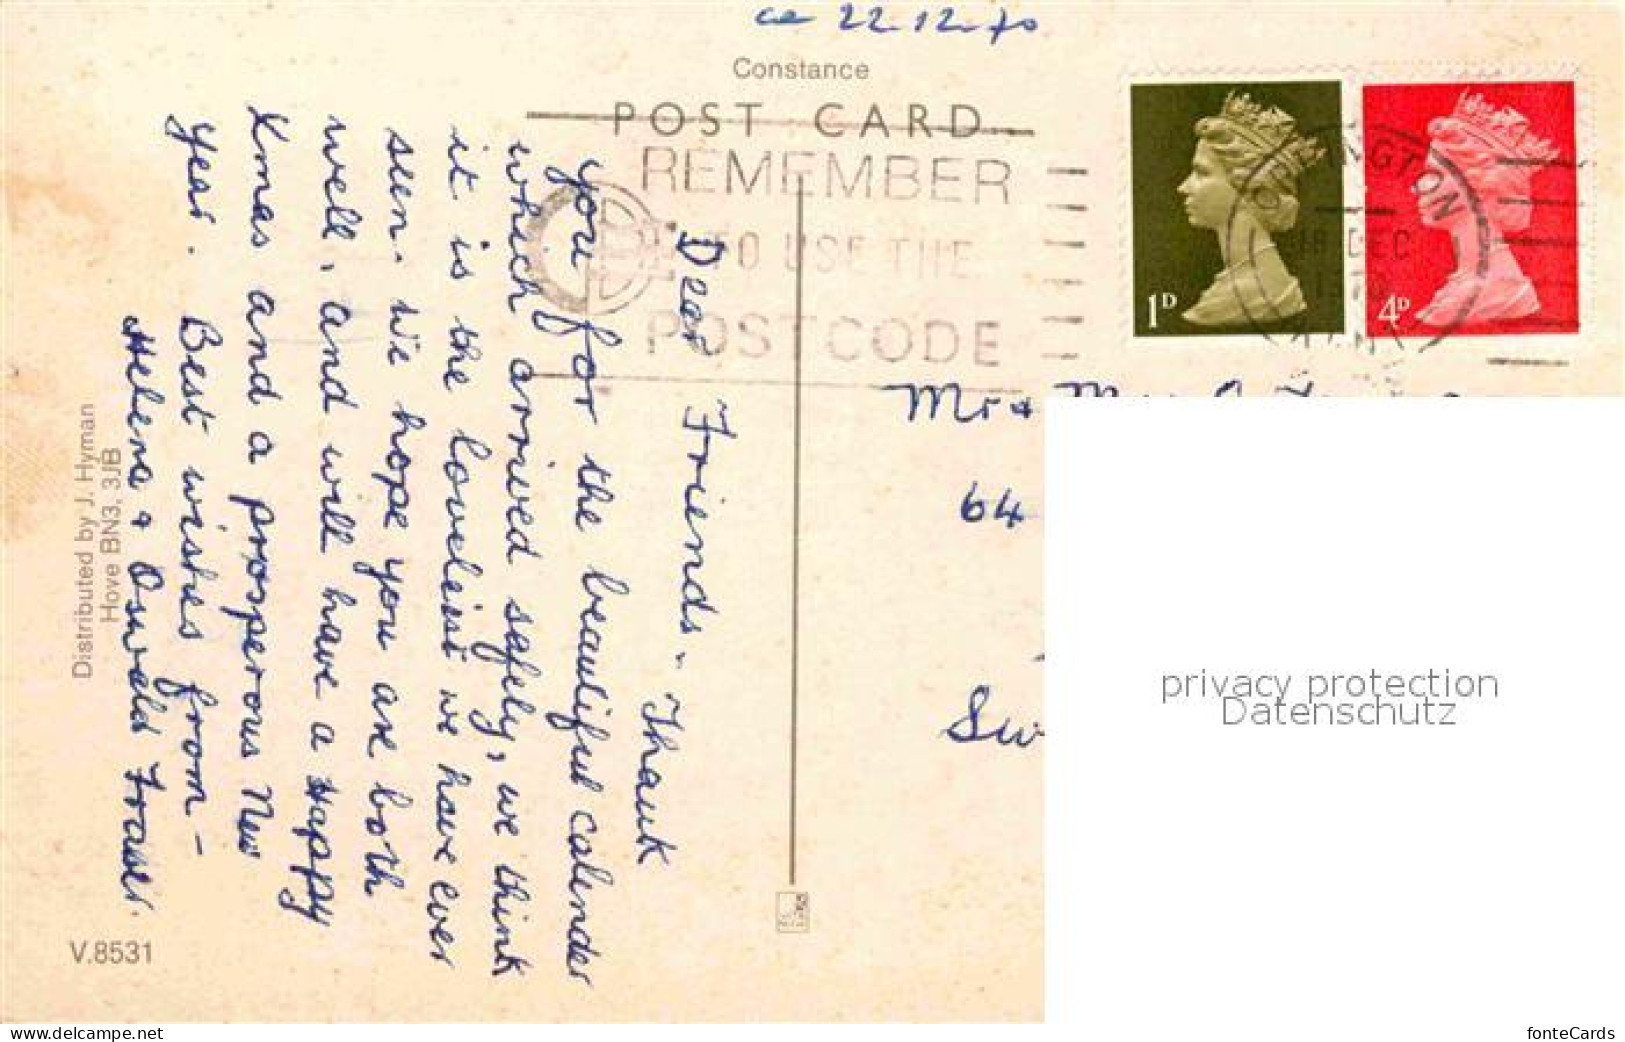 ca 22.12.70
Constance
POST CARD
REMEMBER
TO USE THE
POSTCODE
1D
4D
ORPINGTON
18 DEC
KENT
Dear Friends - Thank
you for the beautiful calender
which arrived safely, we think
it is the loveliest we have ever
seen. We hope you are both
well, and will have a Happy
Xmas and a prosperous New
Year. Best wishes from -
Helena & Oswald Fraser.
Distributed by J. Hyman
Hove BN3, 3JB
V.8531
Mr &
64
Sw
privacy protection
Datenschutz
www.delcampe.net
fonteCards